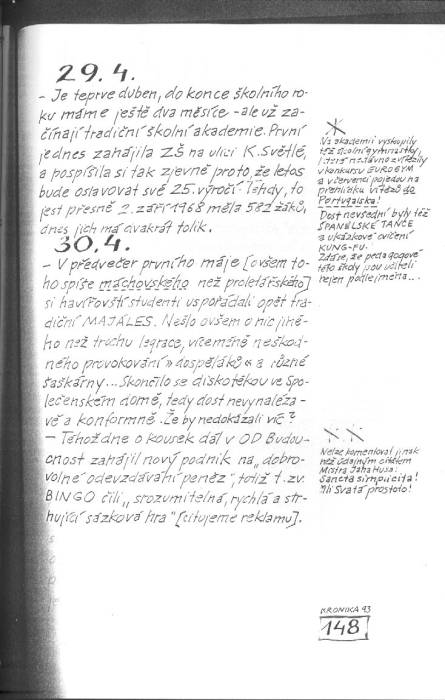 29.4.
- Je teprve duben, do konce školního ro-
ku máme ještě dva měsíce - ale už za-
čínají tradiční školní akademie. První
jednes zahájila ZŠ na ulici K. Světlé,
a pospíšila si tak zjevně proto, že letos
bude oslavovat své 25. výročí. Tehdy, to
jest přesně 2. září 1968 měla 582 žáků,
dnes jich má dvakrát tolik.
30.4.
- V předvečer prvního máje [ovšem to-
ho spíše máchovského než proletářského]
si havířovští studenti uspořádali opět tra-
diční MAJÁLES. Nešlo ovšem o nic jiné-
ho než trochu legrace, víceméně neškod-
ného provokování »dospěláků« a různé
šaškárny... Skončilo se diskotékou ve Spo-
lečenském domě, tedy dost nevynaléza-
vě a konformně. Že by nedokázali víc?
- Téhož dne o kousek dál v OD Budou-
cnost zahájil nový podnik na „dobro-
volné odevzdávání peněz", totiž t. zv.
BINGO čili „srozumitelná, rychlá a str-
hující sázková hra" [citujeme reklamu].
Na akademii vystoupily
též školní gymnastky,
v konkursu EUROGYM
a v červenci pojedou na
přehlídku vítězů do
Portugalska!
Dost nevšední byly též
ŠPANĚLSKÉ TANCE
a ukázkové cvičení
KUNG-FU.
Zdá se, že pedagogové
této školy jsou učiteli
nejen podle jména...
Nelze komentovat jinak
než údajným citátem
Mistra Jana Husa:
Sancta simplicita!
Ili Svatá prostoto!
KRONIKA 93
148